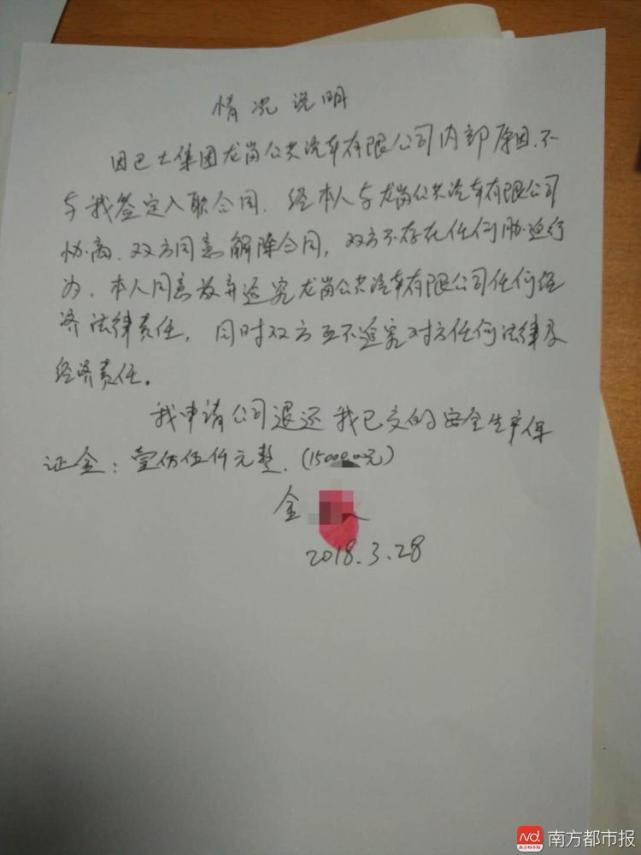 情况说明
因巴士集团龙岗公共汽车有限公司内部原因.不
与我签定入职合同.经本人与龙岗公共汽车有限公司
协商.双方同意解除合同,双方不存在任何胁迫行
为.本人同意放弃追究龙岗公共汽车有限公司任何经
济法律责任,同时双方互不追究对方任何法律及
经济责任。
我申请公司退还我已交的安全生产保
证金:壹仟伍仟元整.(15000元)
金
2018.3.28
南方都市报